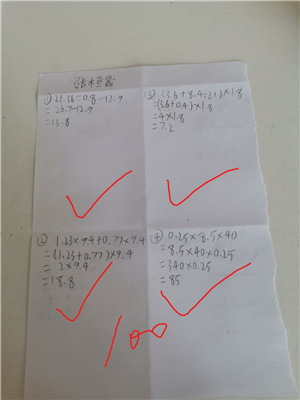 ① 21.36÷0.8-12.9
=26.7-12.9
=13.8
③ (3.6+8.4÷21)×1.8
=(3.6+0.4)×1.8
=4×1.8
=7.2
② 1.23×9.4+0.77×9.4
=(1.23+0.77)×9.4
=2×9.4
=18.8
④ 0.25×8.5×40
=8.5×40×0.25
=340×0.25
=85
100